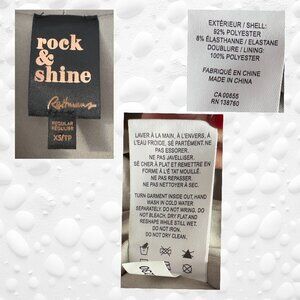 rock
&
shine
Reitmans
REGULAR
RÉGULIER
XS/TP
EXTÉRIEUR / SHELL:
92% POLYESTER
8% ÉLASTHANNE / ELASTANE
DOUBLURE / LINING:
100% POLYESTER
FABRIQUÉ EN CHINE
MADE IN CHINA
CA 00655
RN 138760
LAVER À LA MAIN, À L'ENVERS, À
L'EAU FROIDE, SÉPARÉMENT, NE
PAS ESSORER.
NE PAS JAVELLISER.
SÉCHER À PLAT ET REMETTRE EN
FORME À L'ÉTAT MOUILLÉ.
NE PAS REPASSER.
NE PAS NETTOYER À SEC.
TURN GARMENT INSIDE OUT, HAND
WASH IN COLD WATER
SEPARATELY, DO NOT WRING. DO
NOT BLEACH. DRY FLAT AND
RESHAPE WHILE STILL WET.
DO NOT IRON.
DO NOT DRY CLEAN.